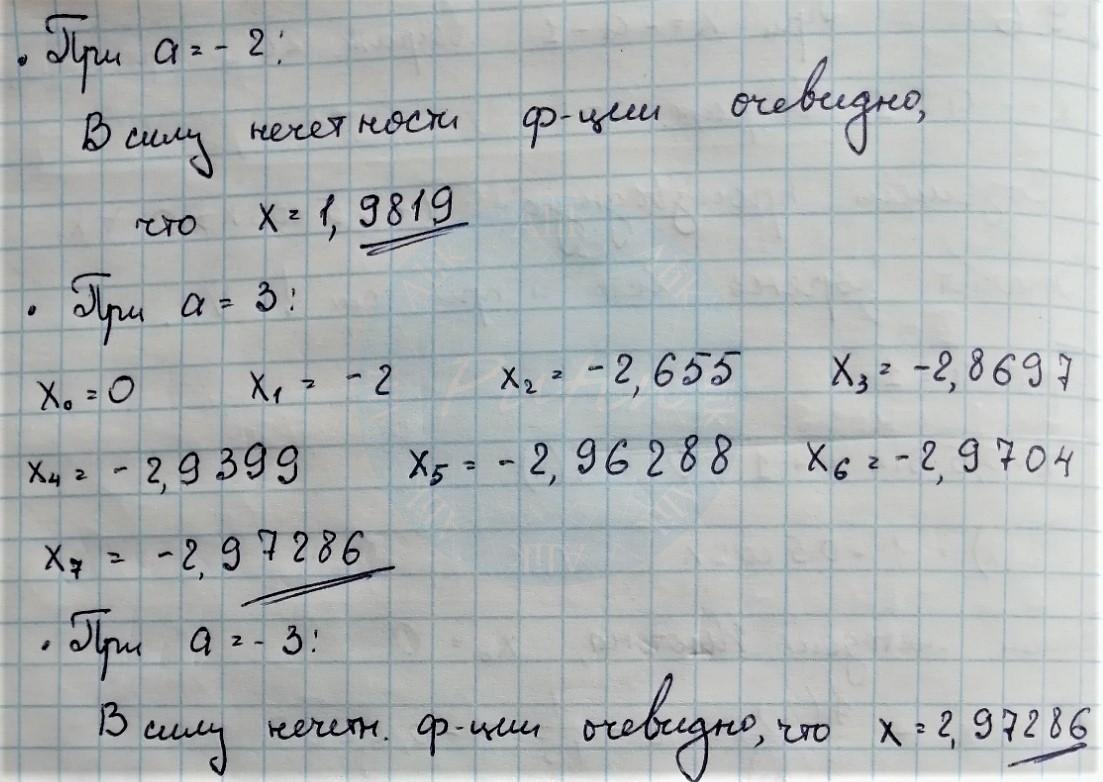 · При a = - 2:
В силу нечетности ф-ции очевидно,
что x = 1,9819
· При a = 3:
x₀ = 0 x₁ = -2 x₂ = -2,655 x₃ = -2,8697
x₄ = -2,9399 x₅ = -2,96288 x₆ = -2,9704
x₇ = -2,97286
· При a = - 3:
В силу нечетн. ф-ции очевидно, что x = 2,97286